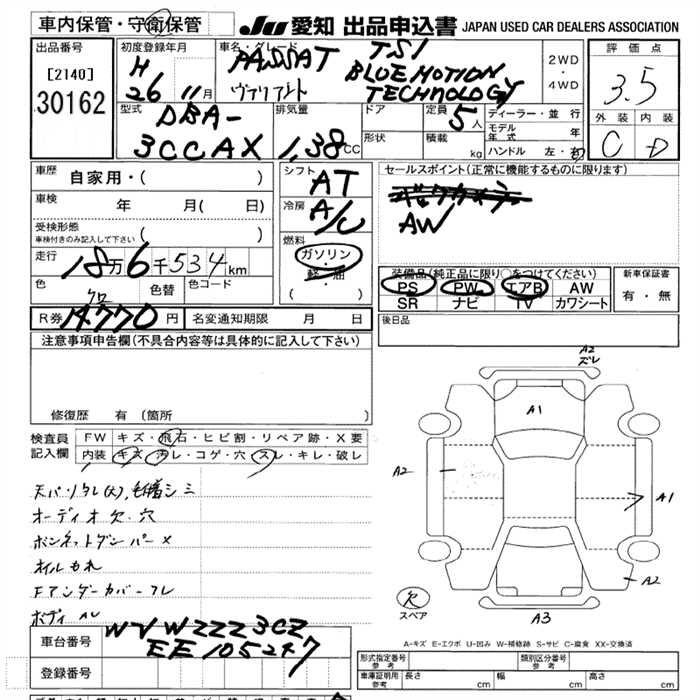 車内保管・守衛保管
JU 愛知 出品申込書 JAPAN USED CAR DEALERS ASSOCIATION
出品番号
[2140]
30162
初度登録年月
H
26 11月
車名・グレード
PASSAT TSI
ヴァリアント BLUEMOTION
TECHNOLOGY
2WD
・
4WD
評価点
3.5
外装 内装
C D
型式
DBA-
3CCAX
排気量
1,38cc
ドア
形状
定員
5人
積載
kg
ディーラー・並行
モデル年式 年
ハンドル 左・右
車歴
自家用・( )
車検
年 月( 日)
受検形態
車検付きのみ記入して下さい ( )
走行
18万6千534km
色
クロ
色替
色コード
R券 14770円
名変通知期限 月 日
シフト
AT
冷房
A/C
燃料
ガソリン
・
軽・油
( )
セールスポイント(正常に機能するものに限ります)
AW
装備品(純正品に限り○をつけてください)
PS PW エアB AW
SR ナビ TV カワシート
新車保証書
有・無
後日品
注意事項申告欄(不具合内容等は具体的に記入して下さい)
修復歴 有(箇所
検査員
記入欄
FW キズ・飛石・ヒビ割・リペア跡・X要
内装 キズ・汚レ・コゲ・穴・スレ・キレ・破レ
オーディオ欠.穴
ボンネットダンパー×
オイルもれ
Fアンダーカバーワレ
A2
ズレ
A1
A2
A1
A2
A3
欠
スペア
A-キズ E-エクボ U-凹み W-補修跡 S-サビ C-腐食 XX-交換済
車台番号
WVWZZZ3CZ
EE105247
登録番号
形式指定番号
参考
類別区分番号
参考
車庫証明用
参考
長さ cm
幅 cm
高さ cm